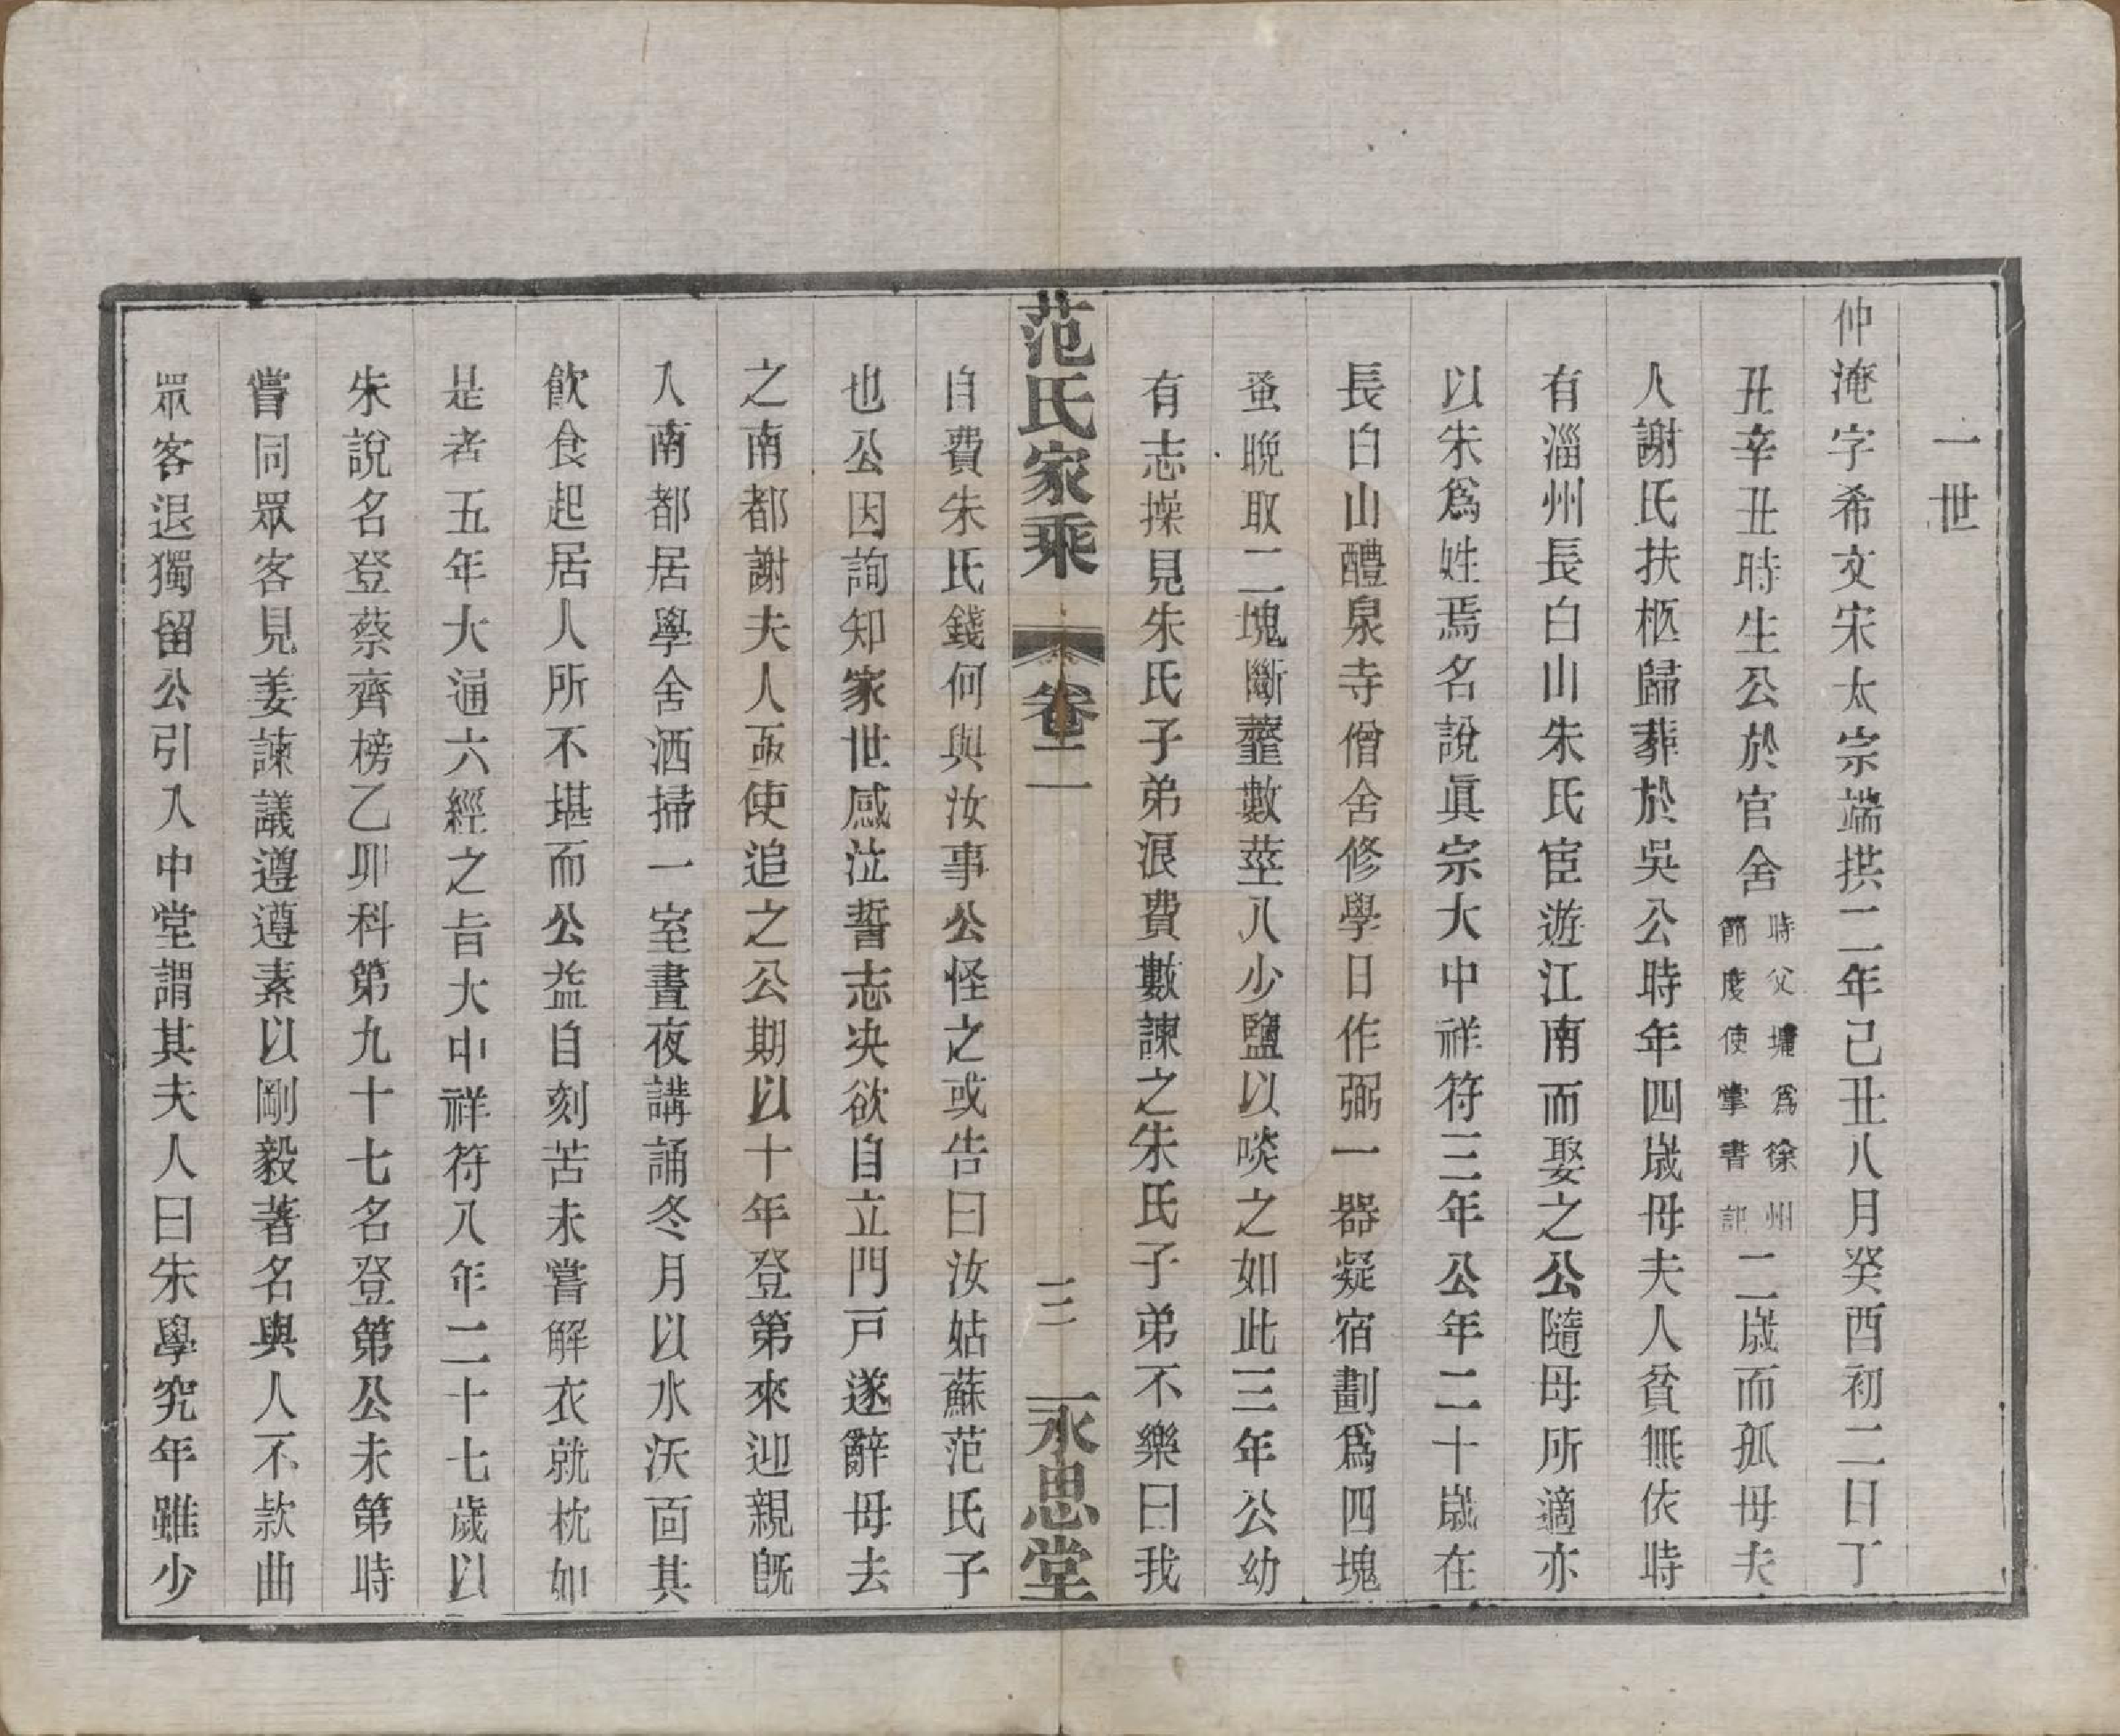 一世
仲淹字希文宋太宗端拱二年己丑八月癸酉初二日丁
丑辛丑時生公於官舍時父墉爲徐州節度使掌書記二歲而孤母夫
人謝氏扶柩歸葬於吳公時年四歲母夫人貧無依時
有淄州長白山朱氏宦遊江南而娶之公隨母所適亦
以朱爲姓焉名說眞宗大中祥符三年公年二十歲在
長白山醴泉寺僧舍修學日作粥一器凝宿劃爲四塊
蚤晚取二塊斷虀數莖入少鹽以啖之如此三年公幼
有志操見朱氏子弟浪費數諫之朱氏子弟不樂曰我
范氏家乘 卷二 三 永思堂
自費朱氏錢何與汝事公怪之或告曰汝姑蘇范氏子
也公因詢知家世感泣誓志决欲自立門戸遂辭母去
之南都謝夫人亟使追之公期以十年登第來迎親旣
入南都居學舍洒掃一室晝夜講誦冬月以水沃面其
飮食起居人所不堪而公益自刻苦未嘗解衣就枕如
是者五年大通六經之旨大中祥符八年二十七歲以
朱說名登蔡齊榜乙卯科第九十七名登第公未第時
嘗同眾客見姜諫議遵遵素以剛毅著名與人不款曲
眾客退獨留公引入中堂謂其夫人曰朱學究年雖少